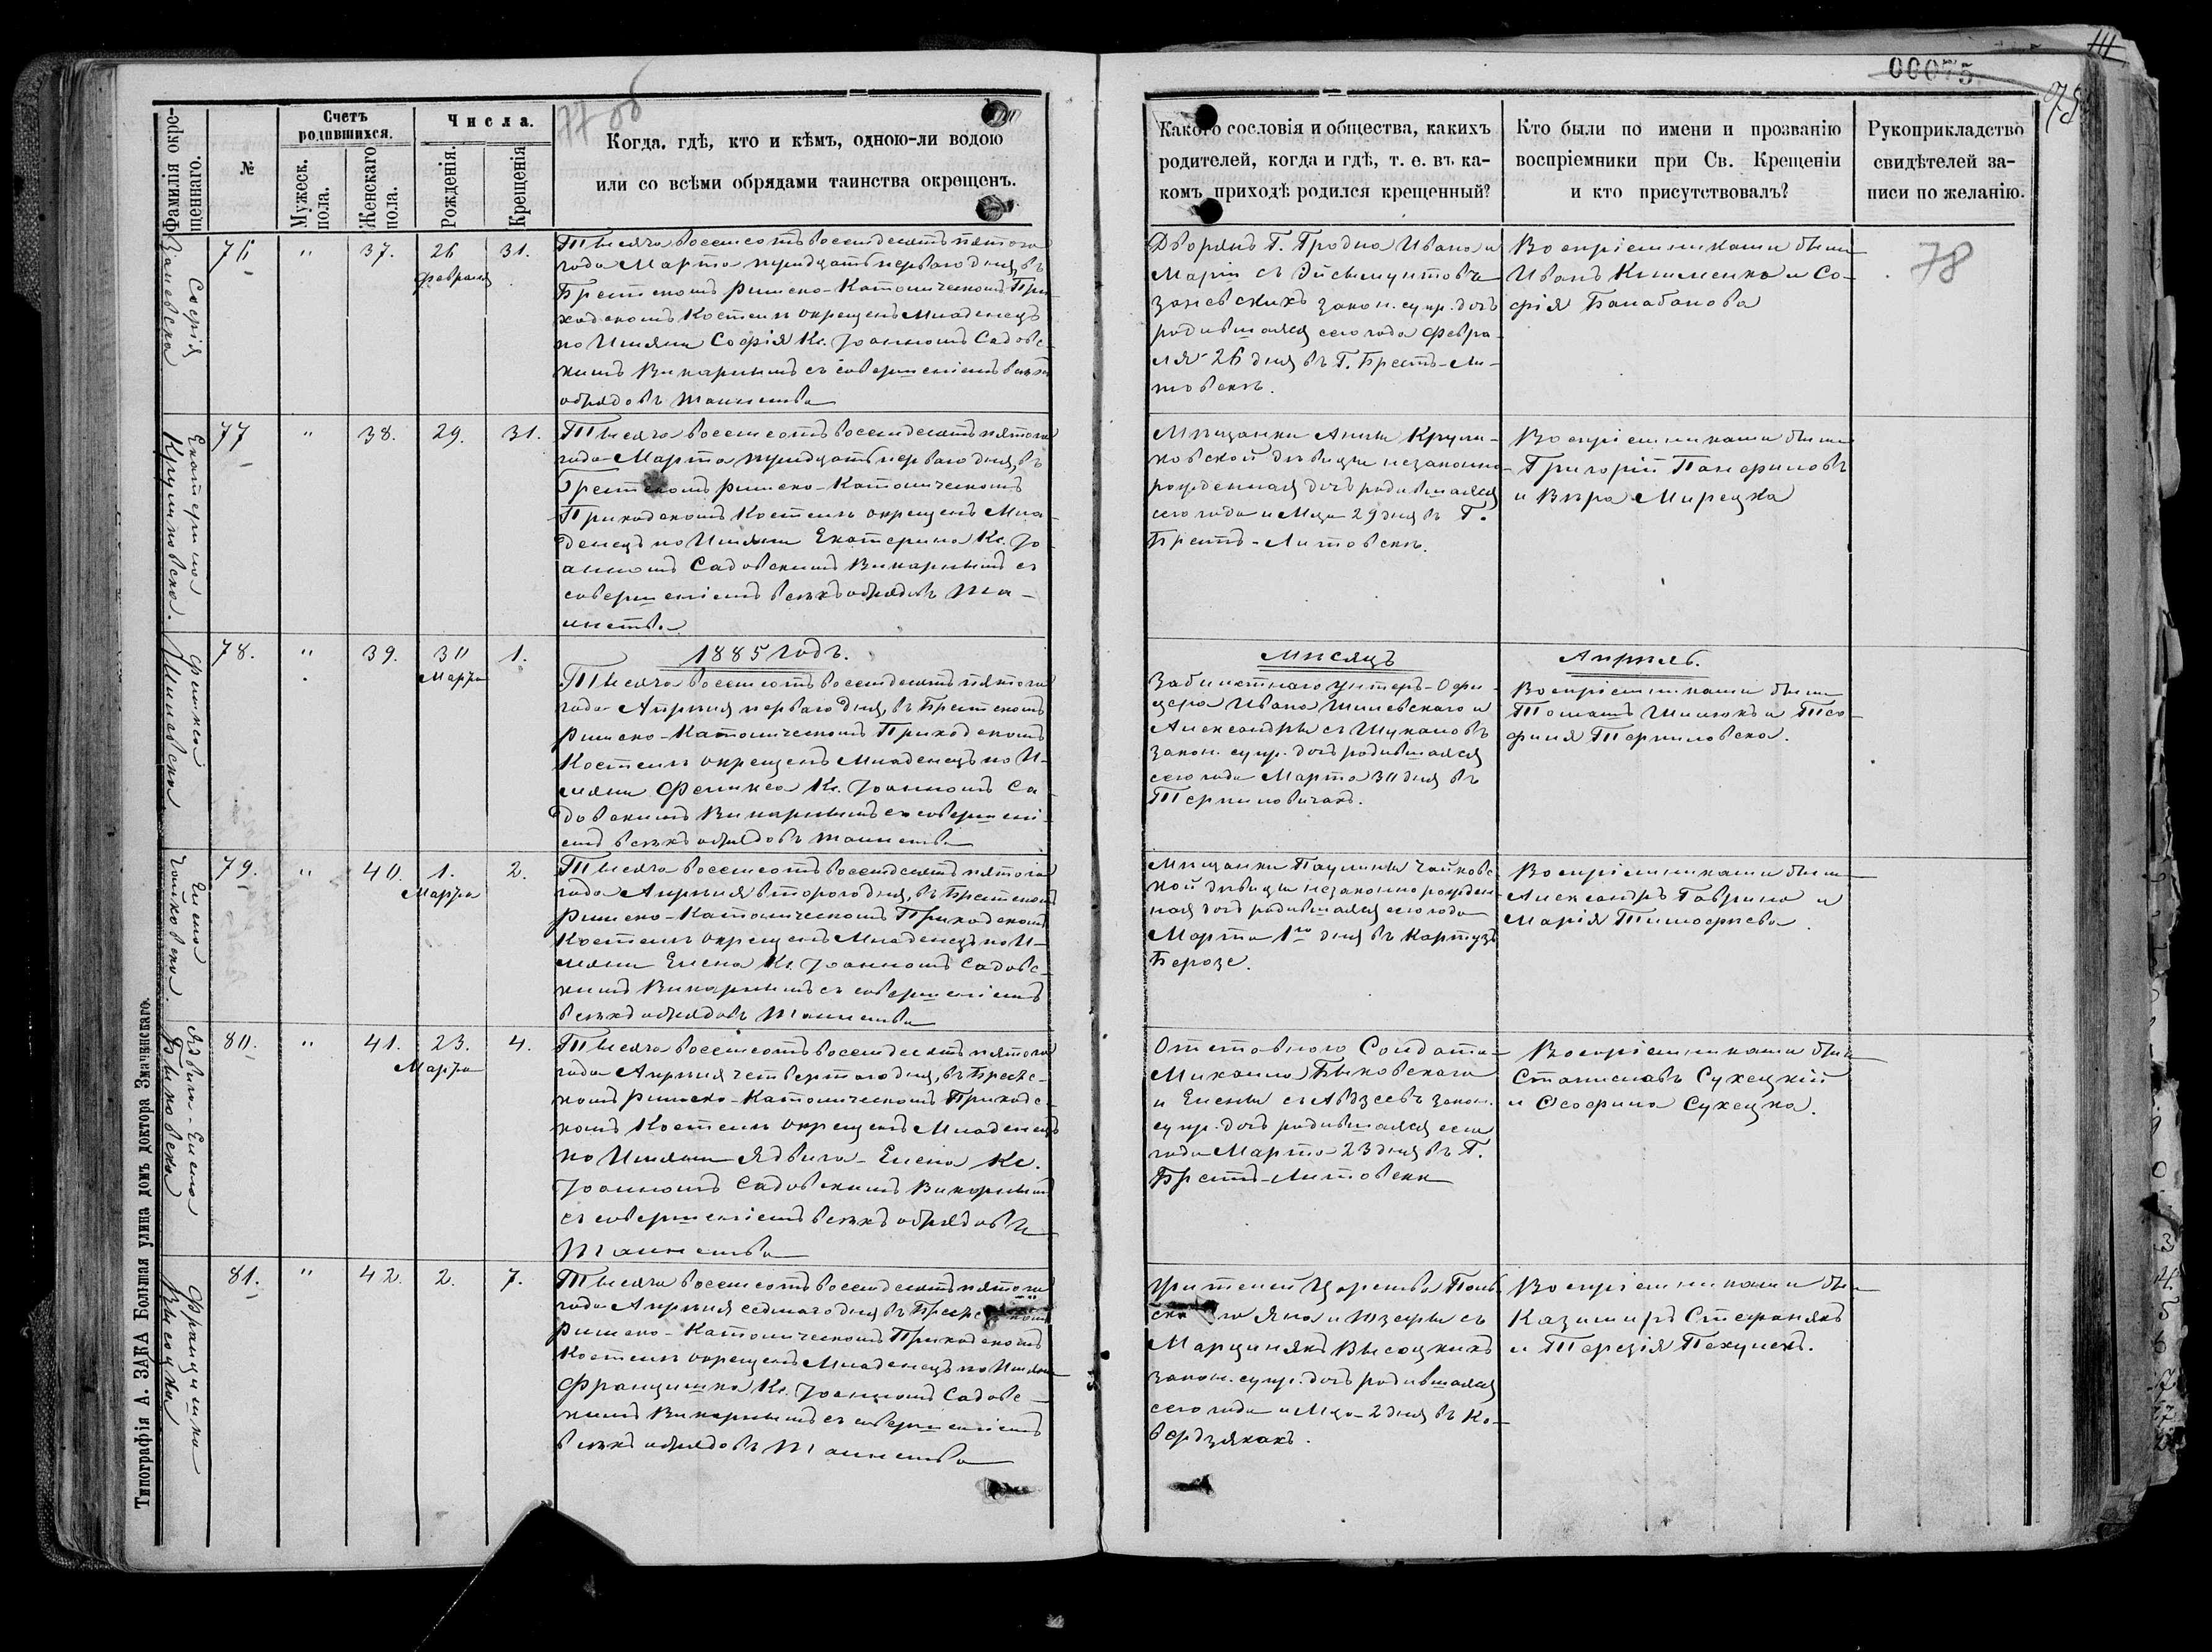 111
00075
78
77 об
Фамилія окре-
щеннаго.
№
Счетъ
родившихся.
Мужеск.
пола.
Женскаго
пола.
Числа.
Рожденія.
Крещенія
Когда, гдѣ, кто и кѣмъ, одною-ли водою
или со всѣми обрядами таинства окрещенъ.
Какого сословія и общества, какихъ
родителей, когда и гдѣ, т. е. въ ка-
комъ приходѣ родился крещенный?
Кто были по имени и прозванію
воспріемники при Св. Крещеніи
и кто присутствовалъ?
Рукоприкладство
свидѣтелей за-
писи по желанію.
78
Софія
76 " 37. 26 31.
февраля
Тысяча восемсотъ восемдесятъ пятого
года Марта тридцать перваго дня, въ
Брестскомъ Римско-Католическомъ При-
ходскомъ Костелѣ окрещенъ Младенецъ
по Имяни Софія Кс. Іоанномъ Садовс-
кимъ Викарнымъ съ совершеніемъ всѣхъ
обрядовъ таинства
Дворянъ Г. Гродна Ивана и
Маріи съ Эйсымунтовъ
закон. супр. дочь
родившаяся сего года Февра-
ля 26 дня въ Г. Брестъ-Ли-
товскѣ.
Воспріемниками были
Иванъ Клименко и Со-
фія Балабанова
Екатерина
Крушковска.
77 " 38. 29. 31.
Тысяча восемсотъ восемдесятъ пятого
года Марта тридцать перваго дня, въ
Брестскомъ Римско-Католическомъ
Приходскомъ Костелѣ окрещенъ Мла-
денецъ по Имяни Екатерина Кс. Іо-
анномъ Садовскимъ Викарнымъ съ
совершеніемъ всѣхъ обрядовъ Та-
инства
Мѣщанки Анны Круш-
ковской дѣвицы незаконно-
рожденная дочь родившаяся
сего года и М-ца 29 дня въ Г.
Брестъ-Литовскѣ.
Воспріемниками были
Григорій Панфиловъ
и Вѣра Мирецка
Фелиkса
78. " 39. 30 1.
Марта
1885 годъ.
Мѣсяцъ
Апрѣль.
Тысяча восемсотъ восемдесятъ пятого
года Апрѣля перваго дня, въ Брестскомъ
Римско-Католическомъ Приходскомъ
Костелѣ окрещенъ Младенецъ по И-
мяни Феликса Кс. Іоанномъ Са-
довскимъ Викарнымъ съ совершені-
емъ всѣхъ обрядовъ таинства
Унтеръ-Офи-
цера Ивана и
Александры съ
закон. супр. дочь родившаяся
сего года Марта 30 дня въ
Тсрпиловичахъ.
Воспріемниками были
Томашъ и Тео-
филя Терпиловска.
Елена
Чайковска.
79. " 40. 1. 2.
Марта
Тысяча восемсотъ восемдесятъ пятого
года Апрѣля второго дня, въ Брестскомъ
Римско-Католическомъ Приходскомъ
Костелѣ окрещенъ Младенецъ по И-
мяни Елена Кс. Іоанномъ Садовс-
кимъ Викарнымъ съ совершеніемъ
всѣхъ обрядовъ Таинства
Мѣщанки Паулины Чайковс-
кой дѣвицы незаконно рожден-
ная дочь родившаяся сего года
Марта 1го дня въ Картузъ
Березе.
Воспріемниками были
Александръ Гаврина и
Марія Тимофѣева.
Ядвига-Елена
Быковска
80. " 41. 23. 4.
Марта
Тысяча восемсотъ восемдесятъ пятого
года Апрѣля четвертого дня, въ Брестс-
комъ Римско-Католическомъ Приходс-
комъ Костелѣ окрещенъ Младенецъ
по Имяни Ядвига-Елена Кс.
Іоанномъ Садовскимъ Викарнымъ
съ совершеніемъ всѣхъ обрядовъ
Таинства
Отставного Солдата
Михаила Быковскаго
и Елены съ закон.
супр. дочь родившаяся сего
года Марта 23 дня въ Г.
Брестъ-Литовскѣ
Воспріемниками были
Станиславъ Сухецкій
и Феофила Сухецка.
Францишка
Высоцка
81. " 42. 2. 7.
Тысяча восемсотъ восемдесятъ пятого
года Апрѣля седмаго дня въ Брестскомъ
Римско-Католическомъ Приходскомъ
Костелѣ окрещенъ Младенецъ по Имяни
Францишка Кс. Іоанномъ Садовс-
кимъ Викарнымъ съ совершеніемъ
всѣхъ обрядовъ Таинства
Жителей Царства Поль-
скаго Яна и Юзефы съ
Марцинякъ Высоцкихъ
закон. супр. дочь родившаяся
сего года и М-ца 2 дня въ Ко-
Воспріемниками бы-
Казиміръ Стефанякъ
и Терезія
Типографія А. ЗАКА Большая улица домъ доктора Значинскаго.